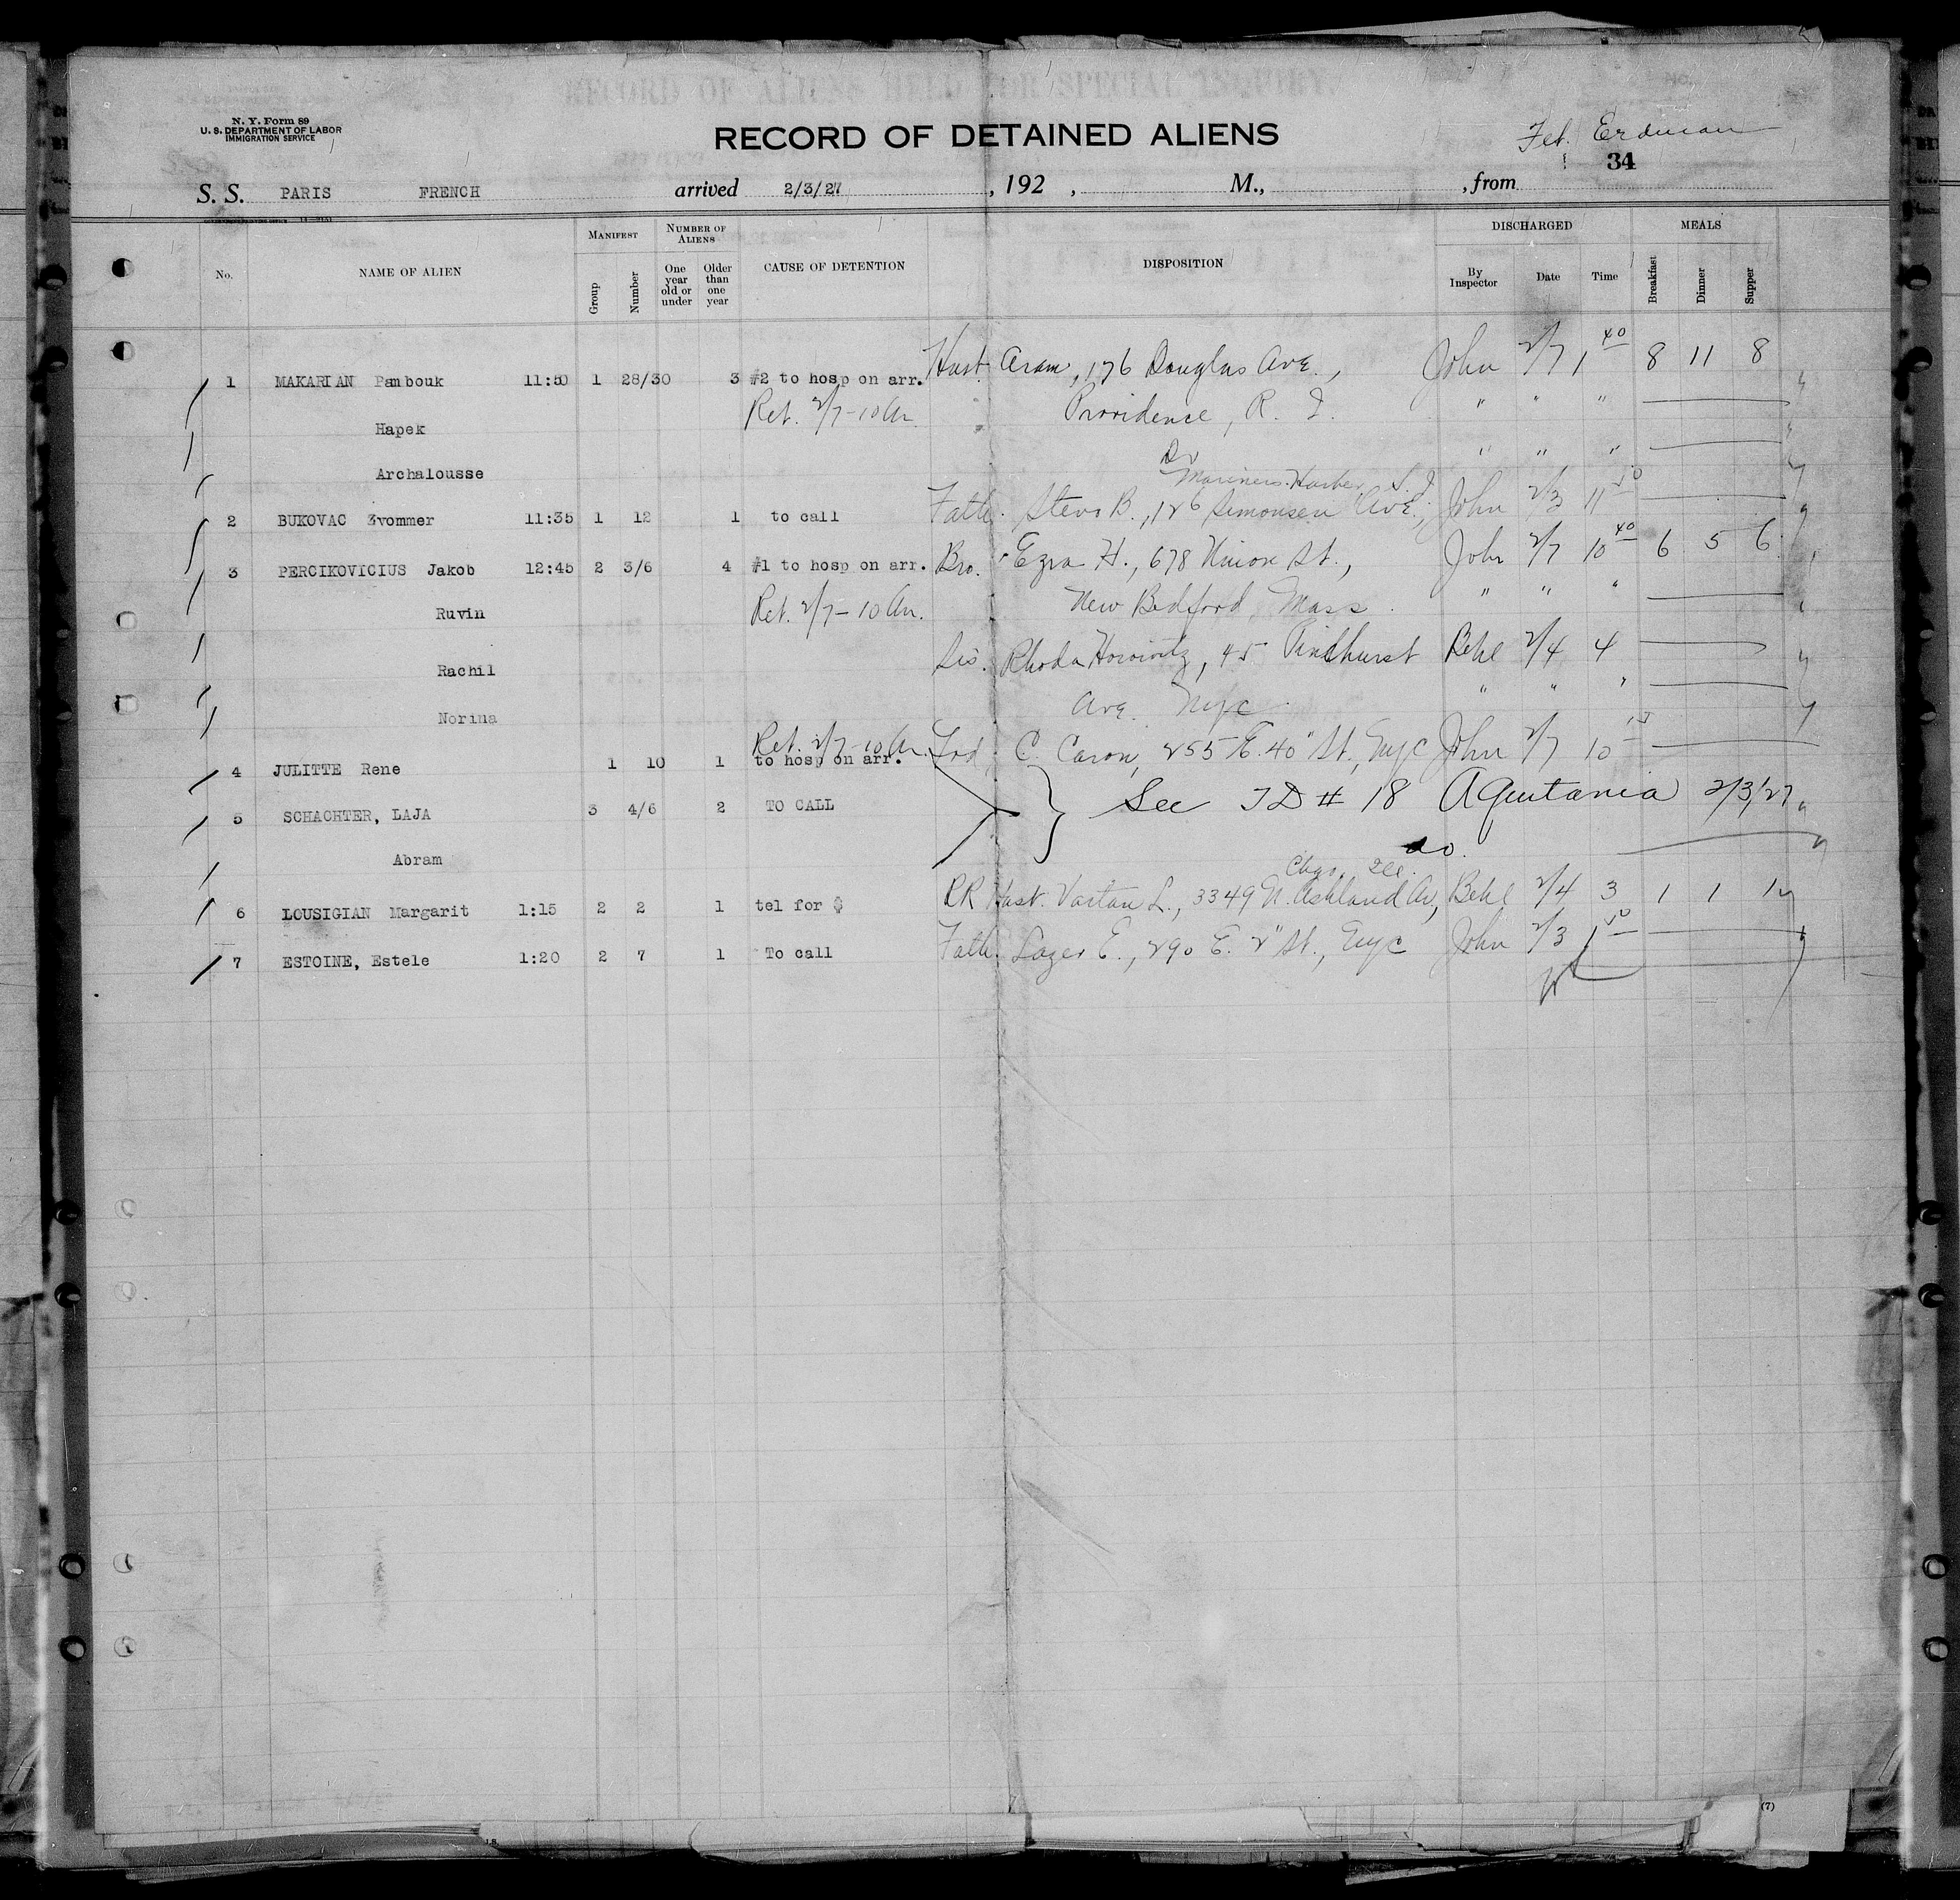 RECORD OF ALIENS HELD FOR SPECIAL INQUIRY.
N. Y. Form 89
U. S. DEPARTMENT OF LABOR
IMMIGRATION SERVICE
RECORD OF DETAINED ALIENS
Erdman
34
S. S. PARIS FRENCH arrived 2/3/27, 192 , M., , from
No. NAME OF ALIEN MANIFEST NUMBER OF ALIENS CAUSE OF DETENTION DISPOSITION DISCHARGED MEALS
Group Number One year old or under Older than one year By Inspector Date Time Breakfast Dinner Supper
1 MAKARIAN Pambouk 11:50 1 28/30 3 #2 to hosp on arr. Husb. Aram, 176 Douglas Ave., John 2/7 1 40 8 11 8
Hapek Ret. 2/7-10 Am. Providence, R. I. " " "
Archalousse " " "
Mariners Harbor, S. I.
2 BUKOVAC Zvommer 11:35 1 12 1 to call Fath. Stevo B., 126 Simonsen Ave., John 2/3 11 50
3 PERCIKOVICIUS Jakob 12:45 2 3/6 4 #1 to hosp on arr. Bro. Ezra H., 678 Union St., John 2/7 10 40 6 5 6
Ruvin Ret. 2/7-10 Am. New Bedford, Mass. " " "
Rachil Sis. Rhoda Horowitz, 45 Pinehurst Behl 2/4 4
Norina Ave. Nyc " " "
Ret. 2/7-10 Am.
4 JULITTE Rene 1 10 1 to hosp on arr. Frd. C. Caron, 255 E. 40" St., Nyc John 2/7 10
5 SCHACHTER, LAJA 3 4/6 2 TO CALL See TD # 18 Aquitania 2/3/27
Abram do.
Chgo. Ill.
6 LOUSIGIAN Margarit 1:15 2 2 1 tel for $ RR Husb. Vartan L., 3349 N. Ashland Av., Behl 2/4 3 1 1 1
7 ESTOINE, Estele 1:20 2 7 1 To call Fath. Lazer E., 290 E. 2" St., Nyc John 2/3 1 50
(7)